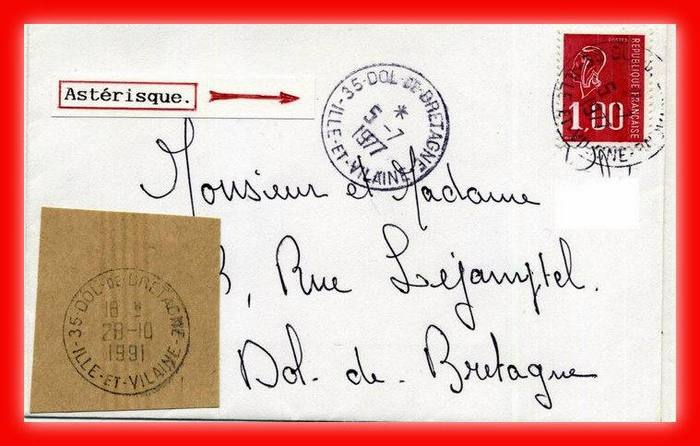 Astérisque.
35-DOL-DE-BRETAGNE
*
5-7
1977
ILLE-ET-VILAINE
POSTES
RÉPUBLIQUE FRANÇAISE
1,00
Monsieur et Madame
Rue Lejamptel.
Dol. de. Bretagne
35-DOL-DE-BRETAGNE
18 *
28-10
1991
ILLE-ET-VILAINE